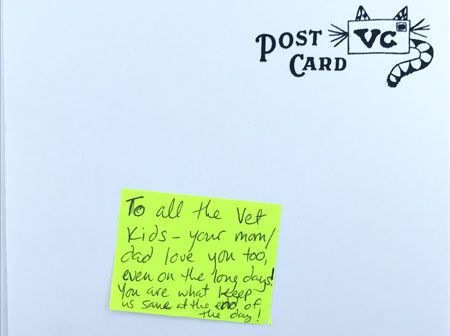 POST
CARD
VC
To all the Vet
Kids - your mom/
dad love you too,
even on the long days!
You are what keep
us sane at the end of
the day!